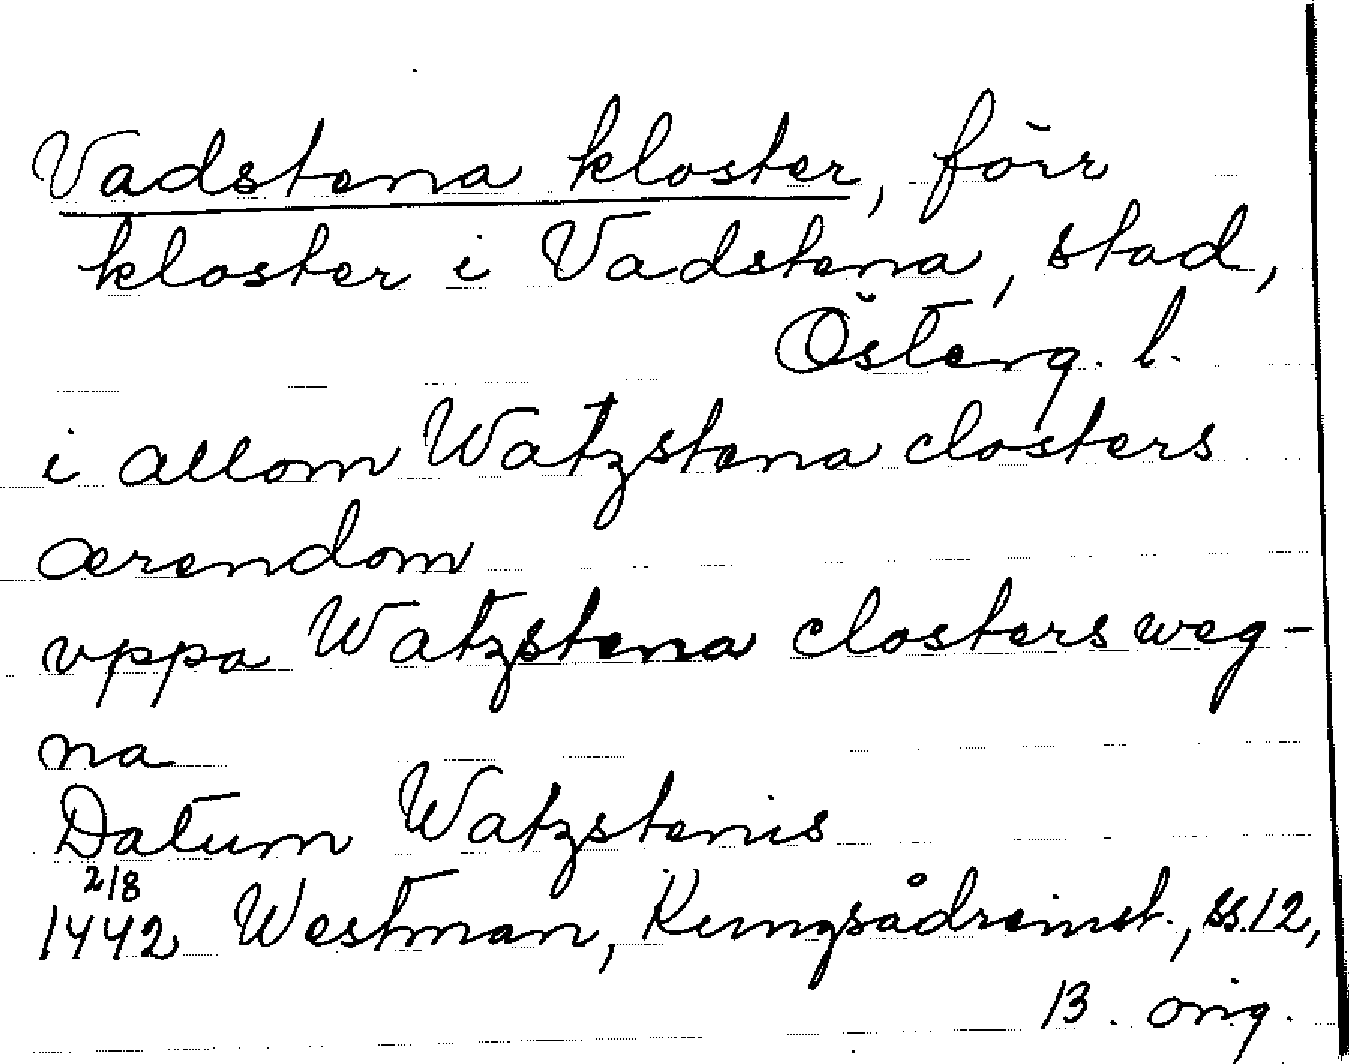 Vadstena kloster, förr
kloster i Vadstena, stad,
Österg. l.
i allom Watzstena closters
ærendom
vppa Watzstena closters weg-
na
Datum Watzstenis
2/8
1442 Westman, Kungsådreinst., ss. 12,
13. orig.